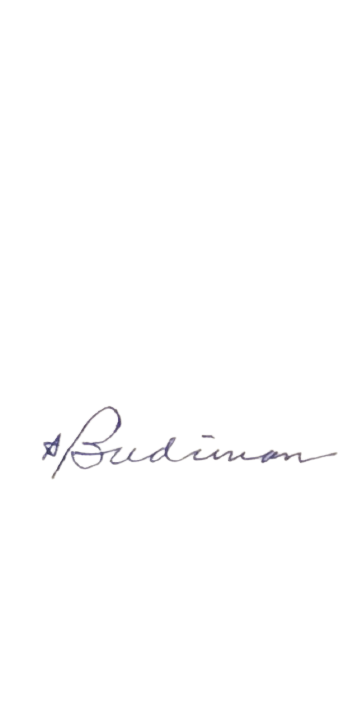 A Budiman